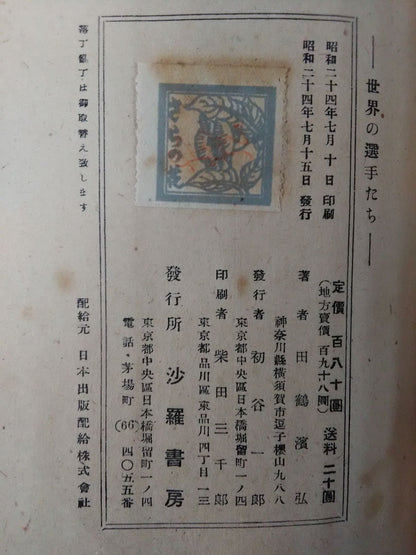 ―― 世界の選手たち ――
昭和二十四年七月十日 印刷
昭和二十四年七月十五日 發行
さらの花
落丁亂丁は御取替え致します
定價 百八十圓 送料 二十圓
(地方賣價 百九十八圓)
著者 田鶴濱 弘
神奈川縣横須賀市逗子櫻山九八八
發行者 初谷一郎
東京都中央區日本橋堀留町一ノ四
印刷者 柴田三千郎
東京都品川區東品川四丁目一三
發行所 沙羅書房
東京都中央區日本橋堀留町一ノ四
電話・茅場町(66)四〇五五番
配給元 日本出版配給株式會社